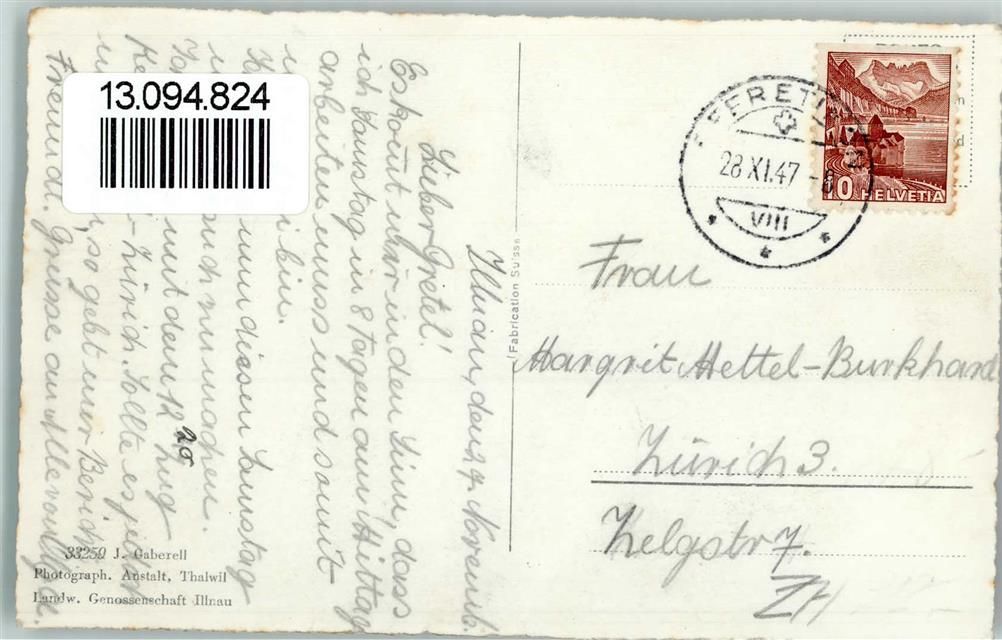 13.094.824
Illnau, den 27. Novemb.
Lieber Gretel!
Es kommt mir in den Sinn, dass
ich Samstag in 8 Tagen am Mittag
arbeiten muss und somit
bin.
um diesen Samstag
zu machen.
mit dem 12 20 Zug
- Zürich. Sollte es jedoch
, so gebt mir Bericht
Freundl. Grüsse an Alle von
33250 J. Gaberell
Photograph. Anstalt, Thalwil
Landw. Genossenschaft Illnau
(Fabrication Suisse
28 XI.47
VIII
10 HELVETIA
Frau
Margrit Hettel-Burkhard
Zürich 3.
Zelgstr 7.
ZH